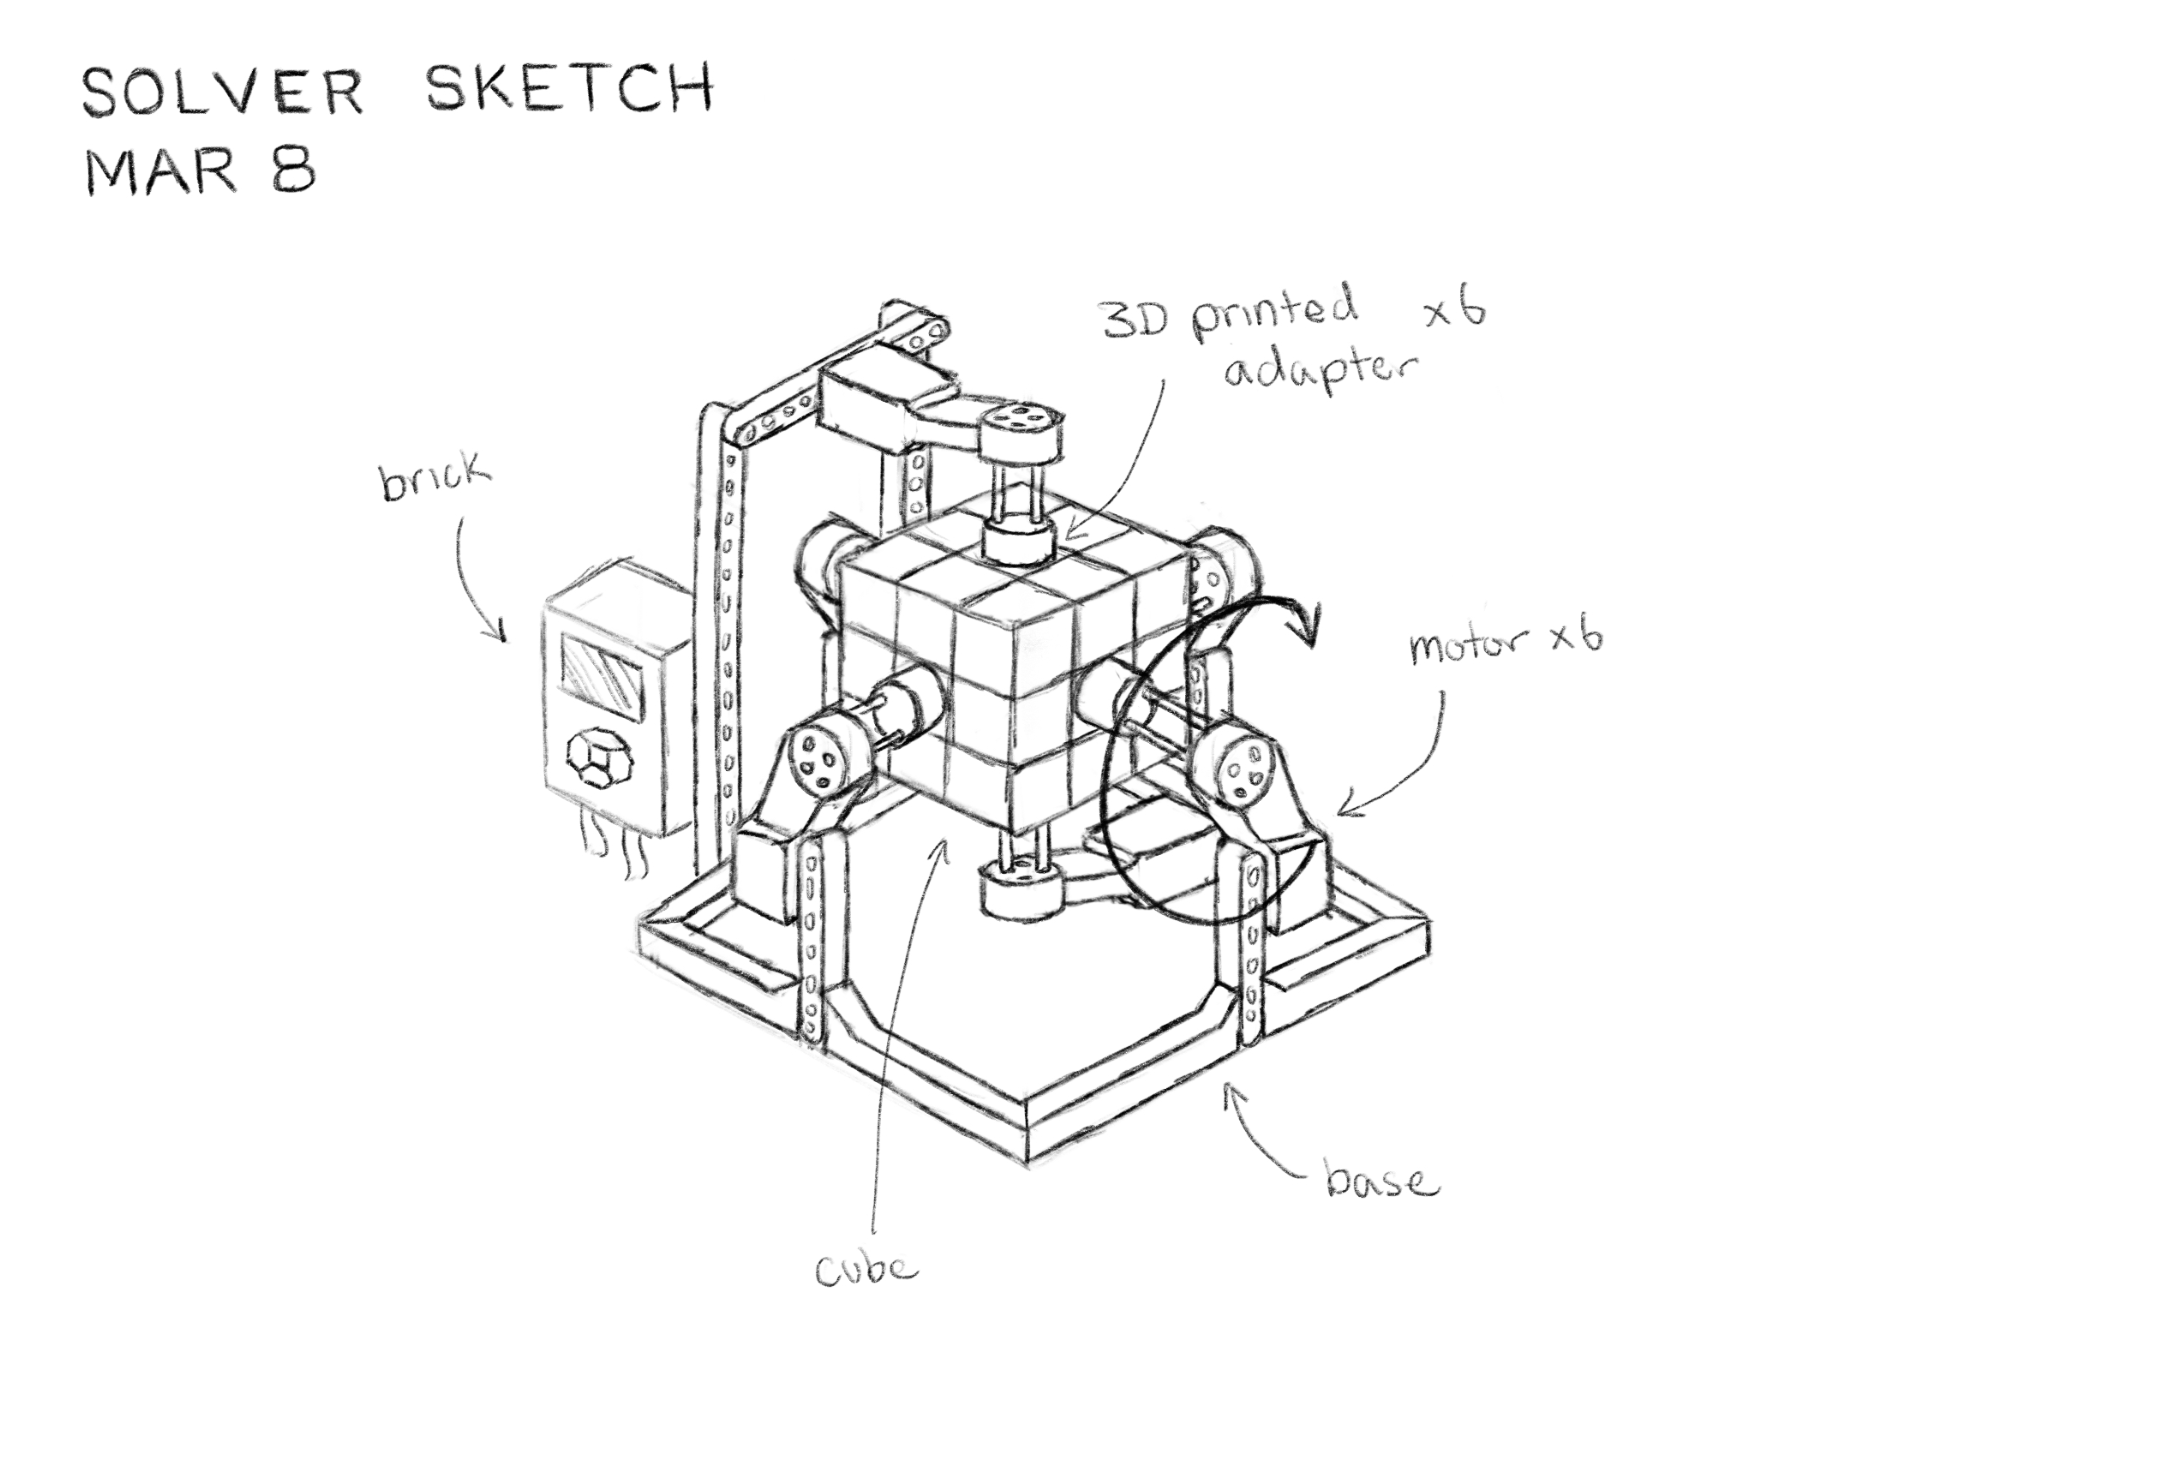 SOLVER SKETCH
MAR 8
3D printed x6
adapter
brick
motor x6
base
cube